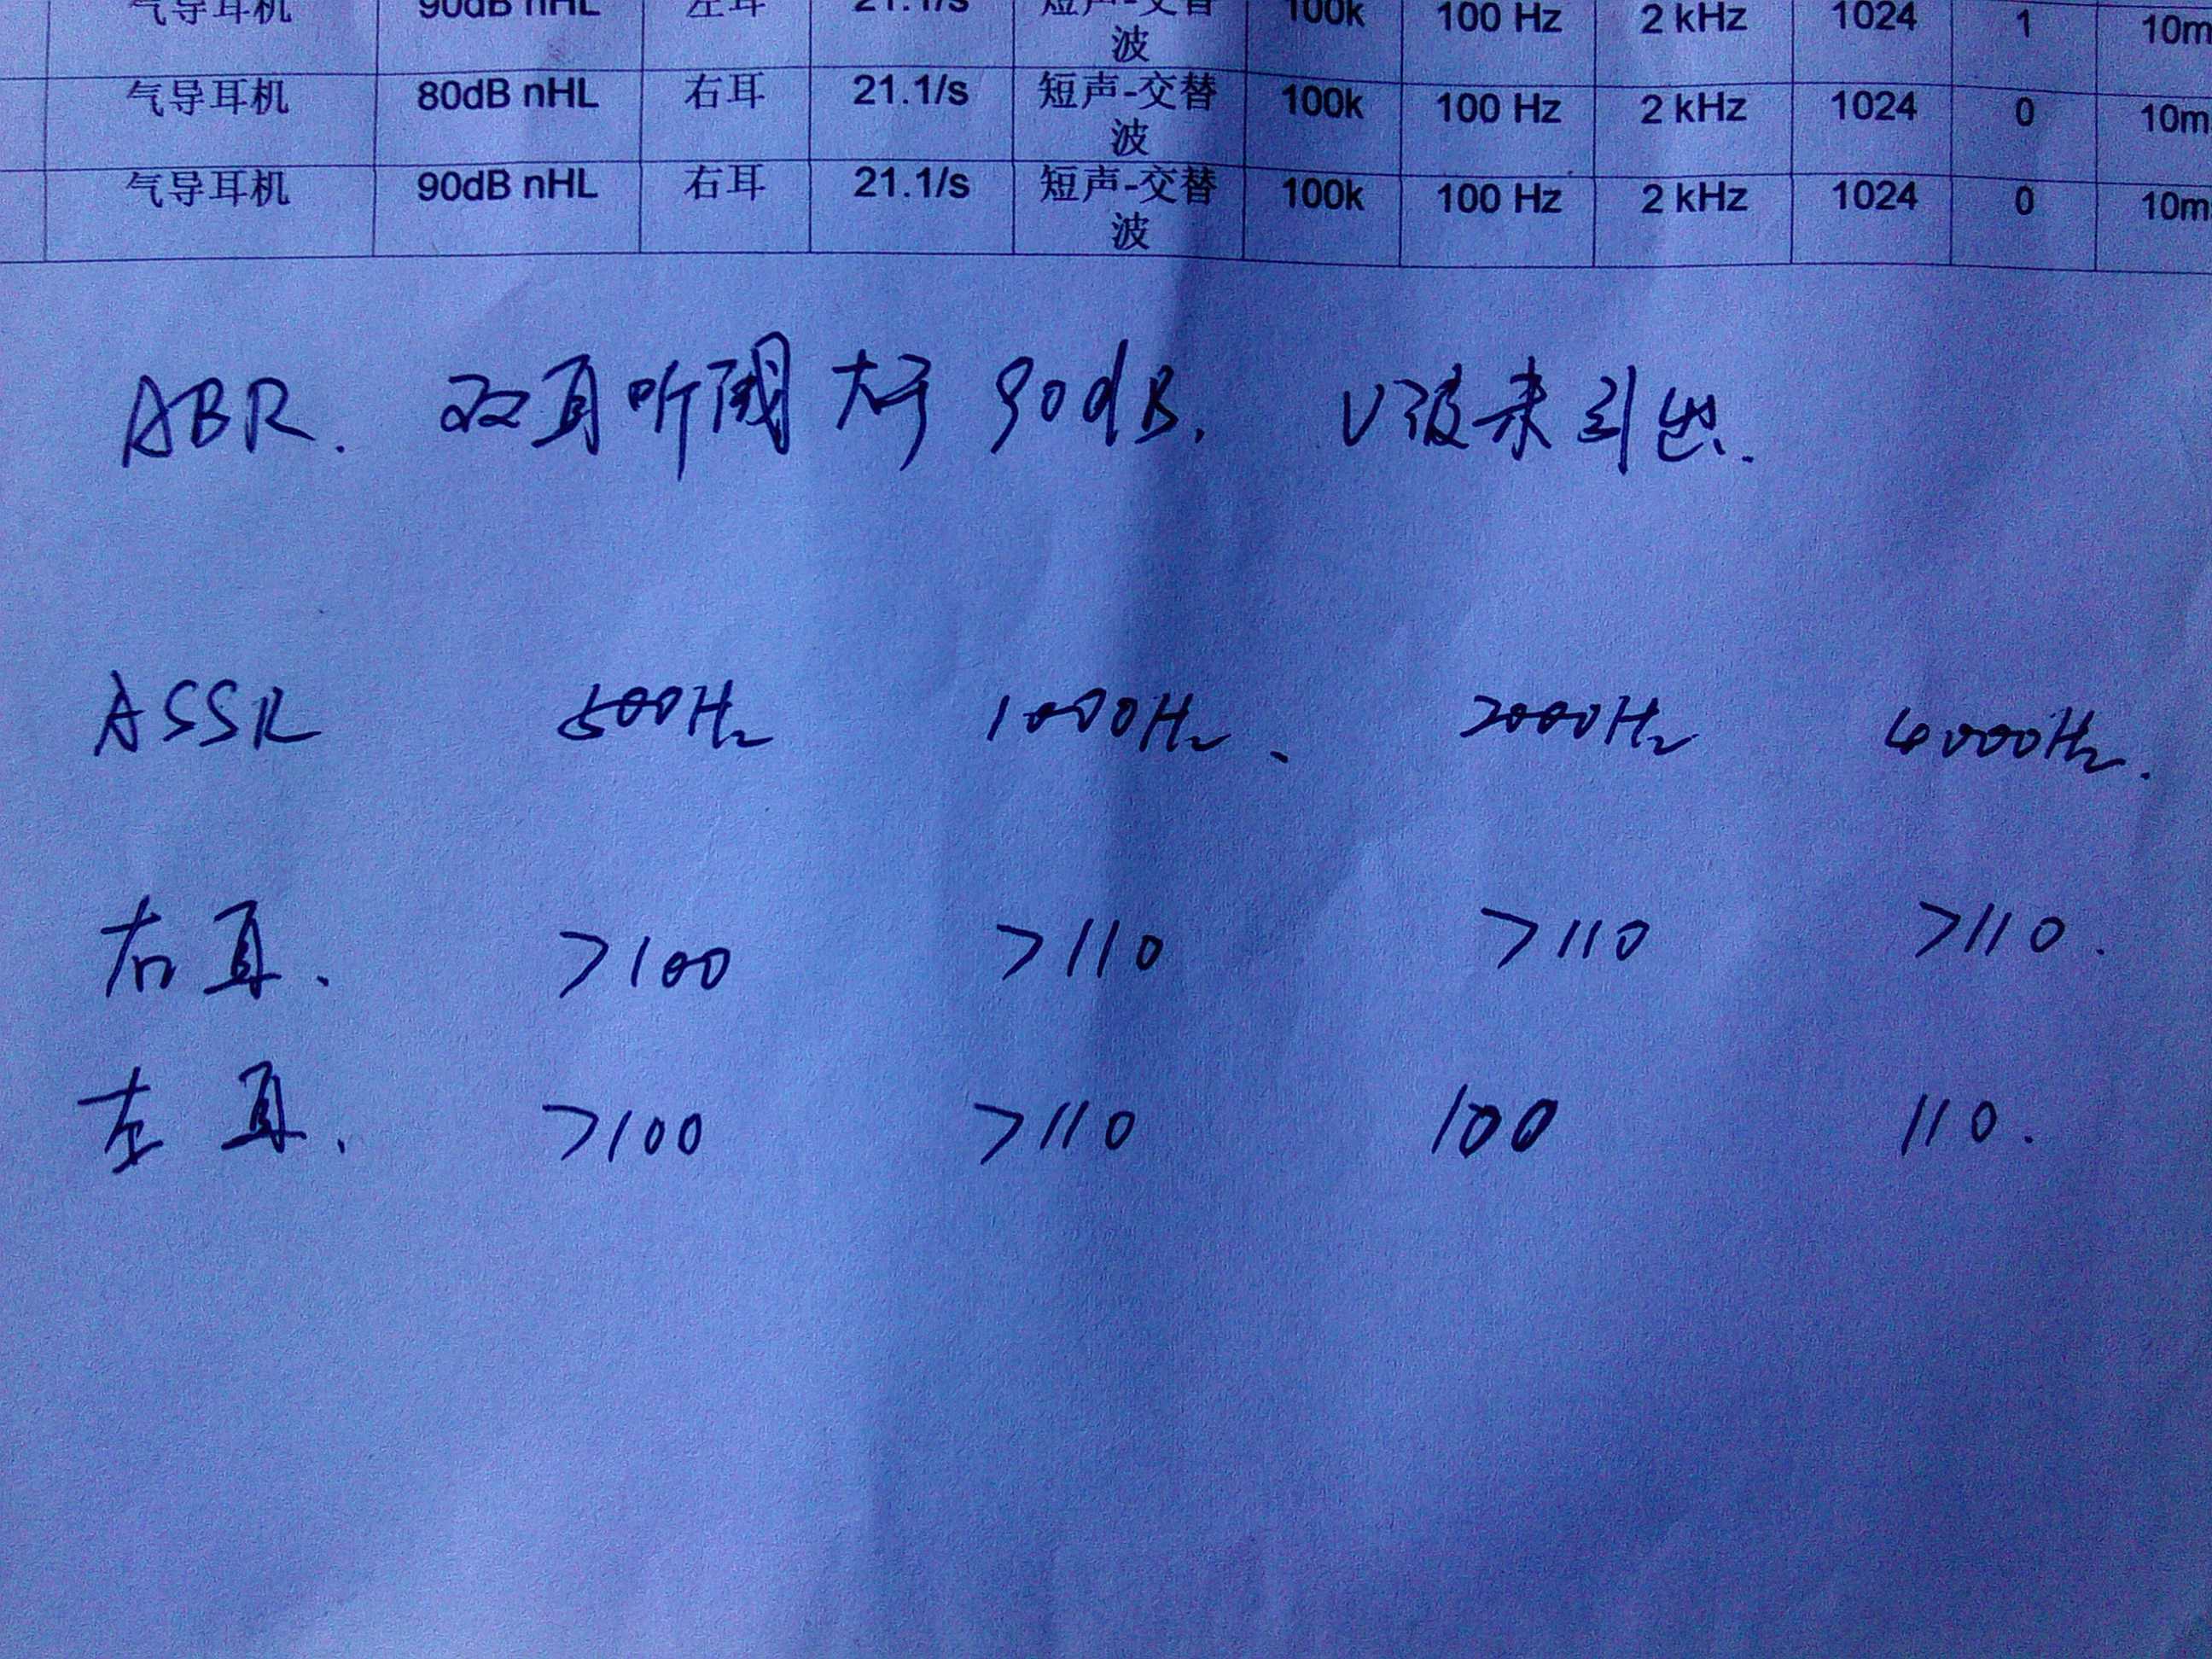 气导耳机 90dB nHL 左耳 21.1/s 短声-交替波 100k 100 Hz 2 kHz 1024 1 10m
气导耳机 80dB nHL 右耳 21.1/s 短声-交替波 100k 100 Hz 2 kHz 1024 0 10m
气导耳机 90dB nHL 右耳 21.1/s 短声-交替波 100k 100 Hz 2 kHz 1024 0 10m
ABR. 双耳听阈大于90dB. V波未引出.
ASSR 500Hz 1000Hz、 2000Hz 4000Hz.
右耳、 >100 >110 >110 >110.
左耳、 >100 >110 100 110.